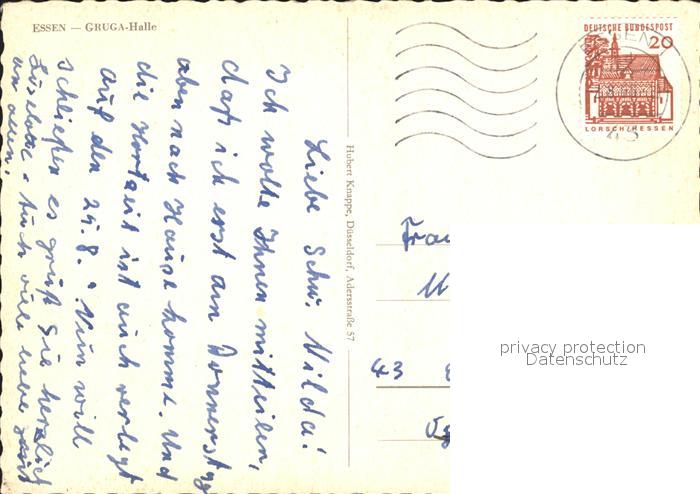 ESSEN — GRUGA-Halle
Liebe Schw. Hilda!
Ich wollte Ihnen mitteilen,
daß ich erst am Donnerstag
aben nach Hause komme. Und
die ist auch verlegt
auf den 25.8. Nun will
schließen es grüßt Sie herzlich
Auch viele liebe
an
Hubert Knappe, Düsseldorf, Adersstraße 57
DEUTSCHE BUNDESPOST
20
LORSCH/HESSEN
ESSEN
43
privacy protection
Datenschutz